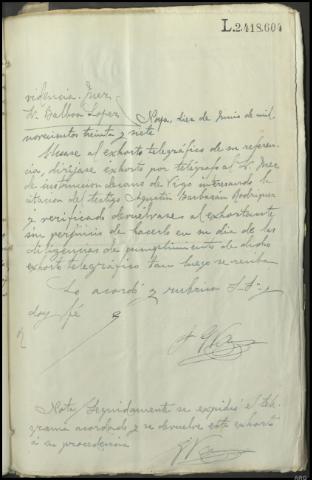 L.2.418.604
videncia. Juez
Sr. Balboa Lopez
Noya, diez de Junio de mil
novecientos treinta y siete
Unase al exhorto telegráfico de su referen-
cia, diríjase exhorto por telégrafo al Sr. Juez
de instrucción decano de Vigo interesando la
citación del testigo Agustín Barbazán Rodríguez
y verificado devuélvase al exhortante,
sin perjuicio de hacerlo en su día de las
diligencias de cumplimiento de dicho
exhorto telegráfico tan luego se reciban
Lo acordó y rubrica S.Sª y
doy fé
Nota/ Seguidamente se expidió el tele-
grama acordado y se devuelve este exhorto
á su procedencia
ARG